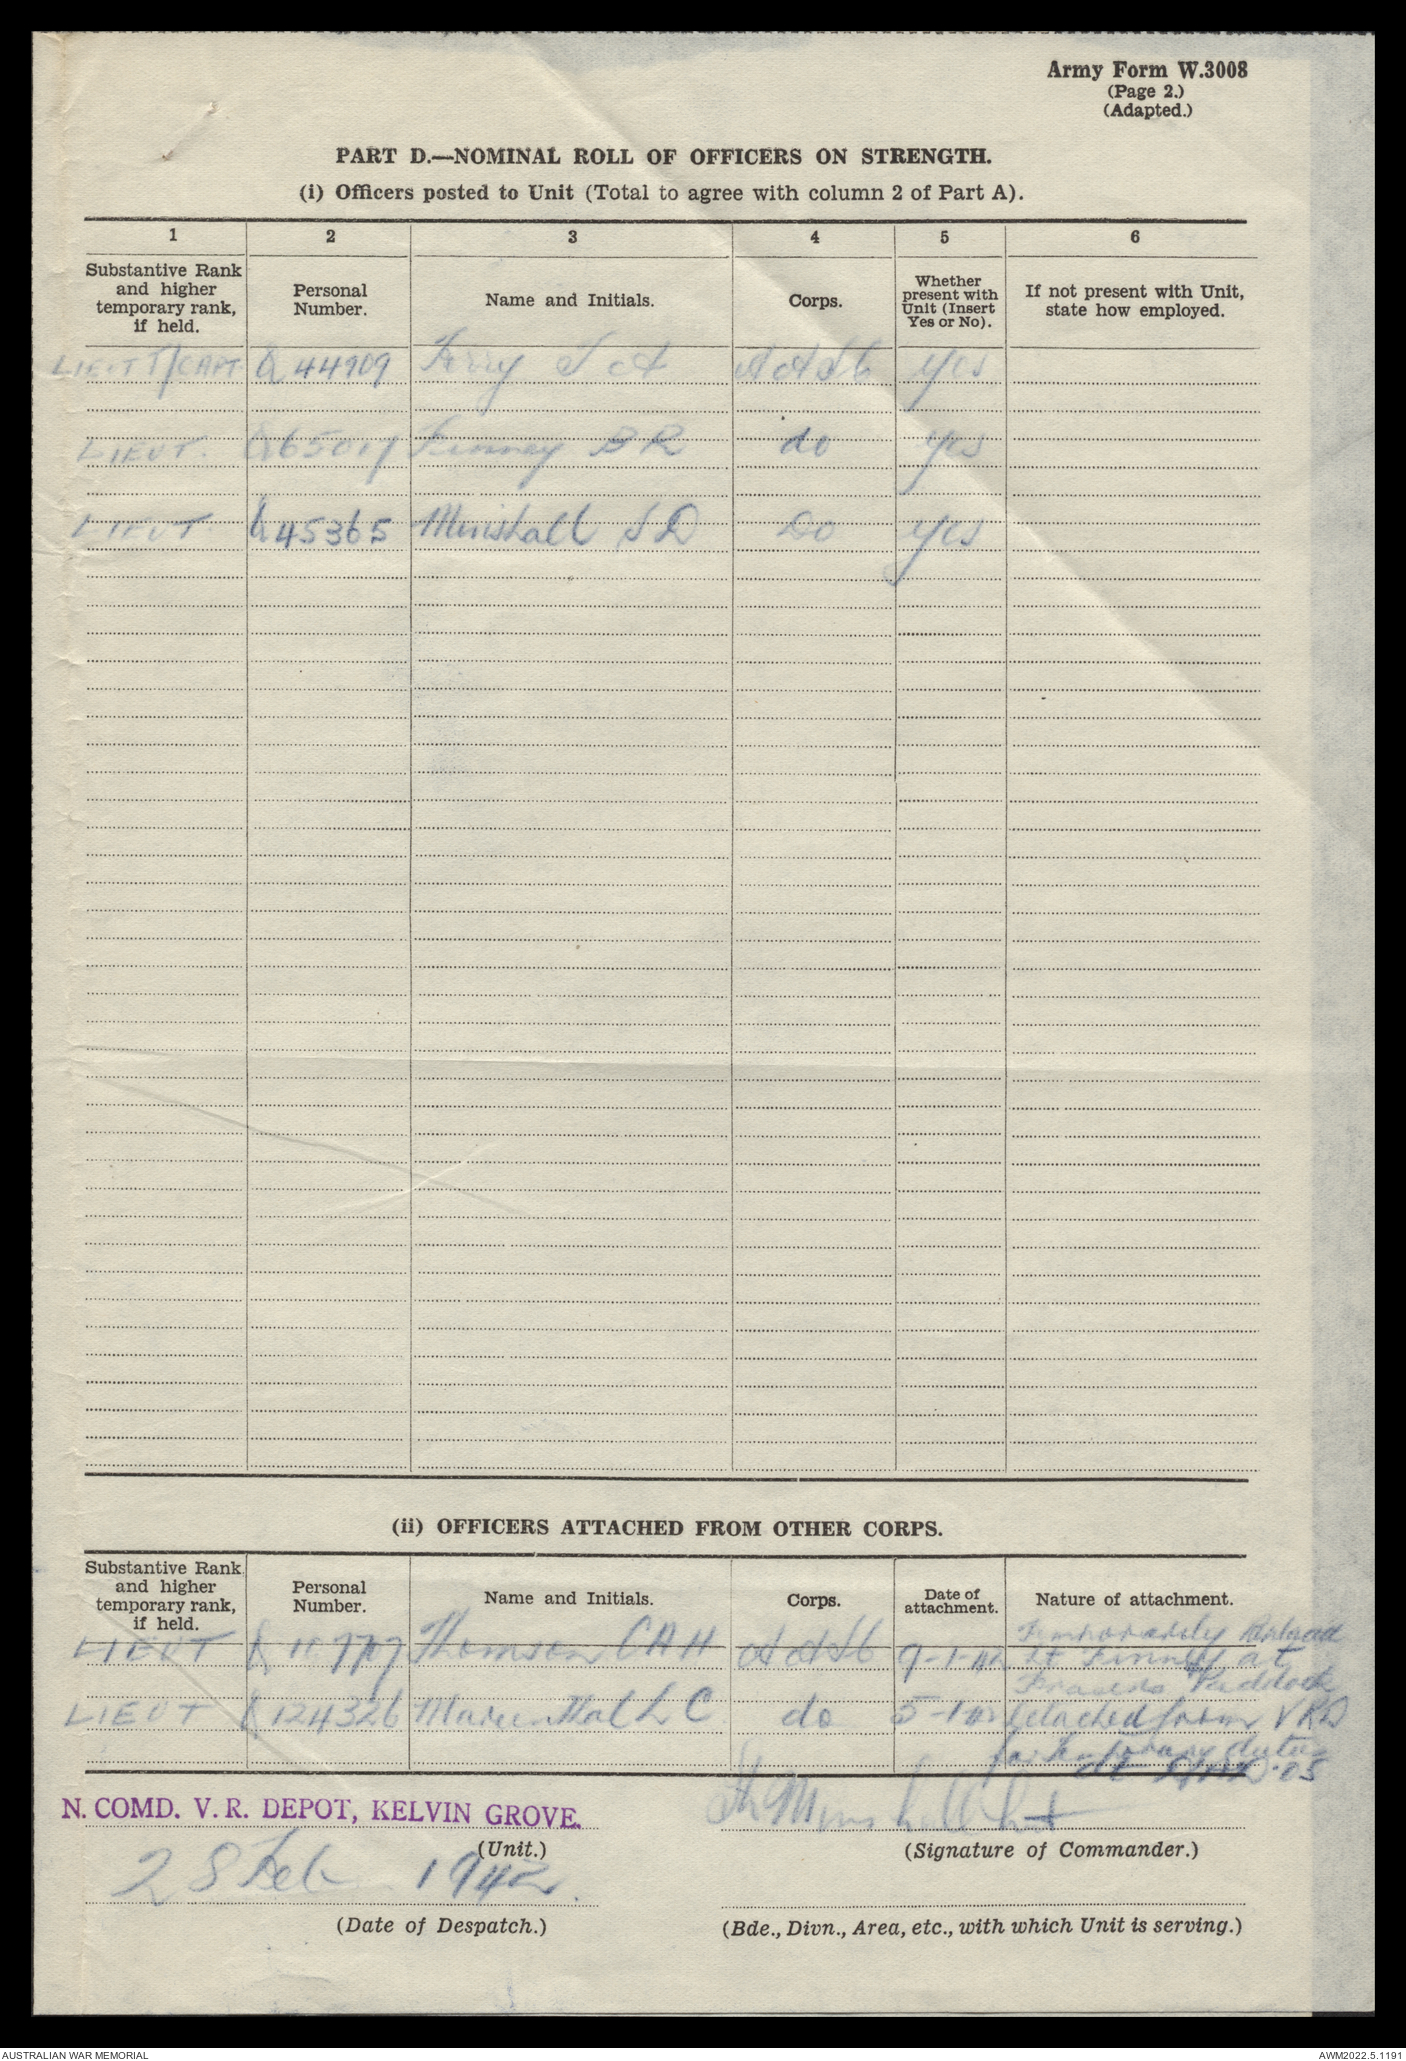 Army Form W.3008
(Page 2.)
(Adapted.)
PART D.—NOMINAL ROLL OF OFFICERS ON STRENGTH.
(i) Officers posted to Unit (Total to agree with column 2 of Part A).
1 2 3 4 5 6
Substantive Rank and higher temporary rank, if held. Personal Number. Name and Initials. Corps. Whether present with Unit (Insert Yes or No). If not present with Unit, state how employed.
LIEUT T/CAPT Q44909 Ferry T A AASC yes
LIEUT. Q65017 Finney B R do yes
LIEUT. Q45365 Minshall S D Do yes
(ii) OFFICERS ATTACHED FROM OTHER CORPS.
Substantive Rank and higher temporary rank, if held. Personal Number. Name and Initials. Corps. Date of attachment. Nature of attachment.
LIEUT Thomson C A H AASC 9-1-42 Temporarily
Lt Finney at
Frasers Paddock
LIEUT Q124326 L C do 5-1-42 detached from VRD
for temporary duty
N. COMD. V. R. DEPOT, KELVIN GROVE.
Minshall Lt
(Unit.)
(Signature of Commander.)
28 Feb 1942.
(Date of Despatch.)
(Bde., Divn., Area, etc., with which Unit is serving.)
AUSTRALIAN WAR MEMORIAL
AWM2022.5.1191